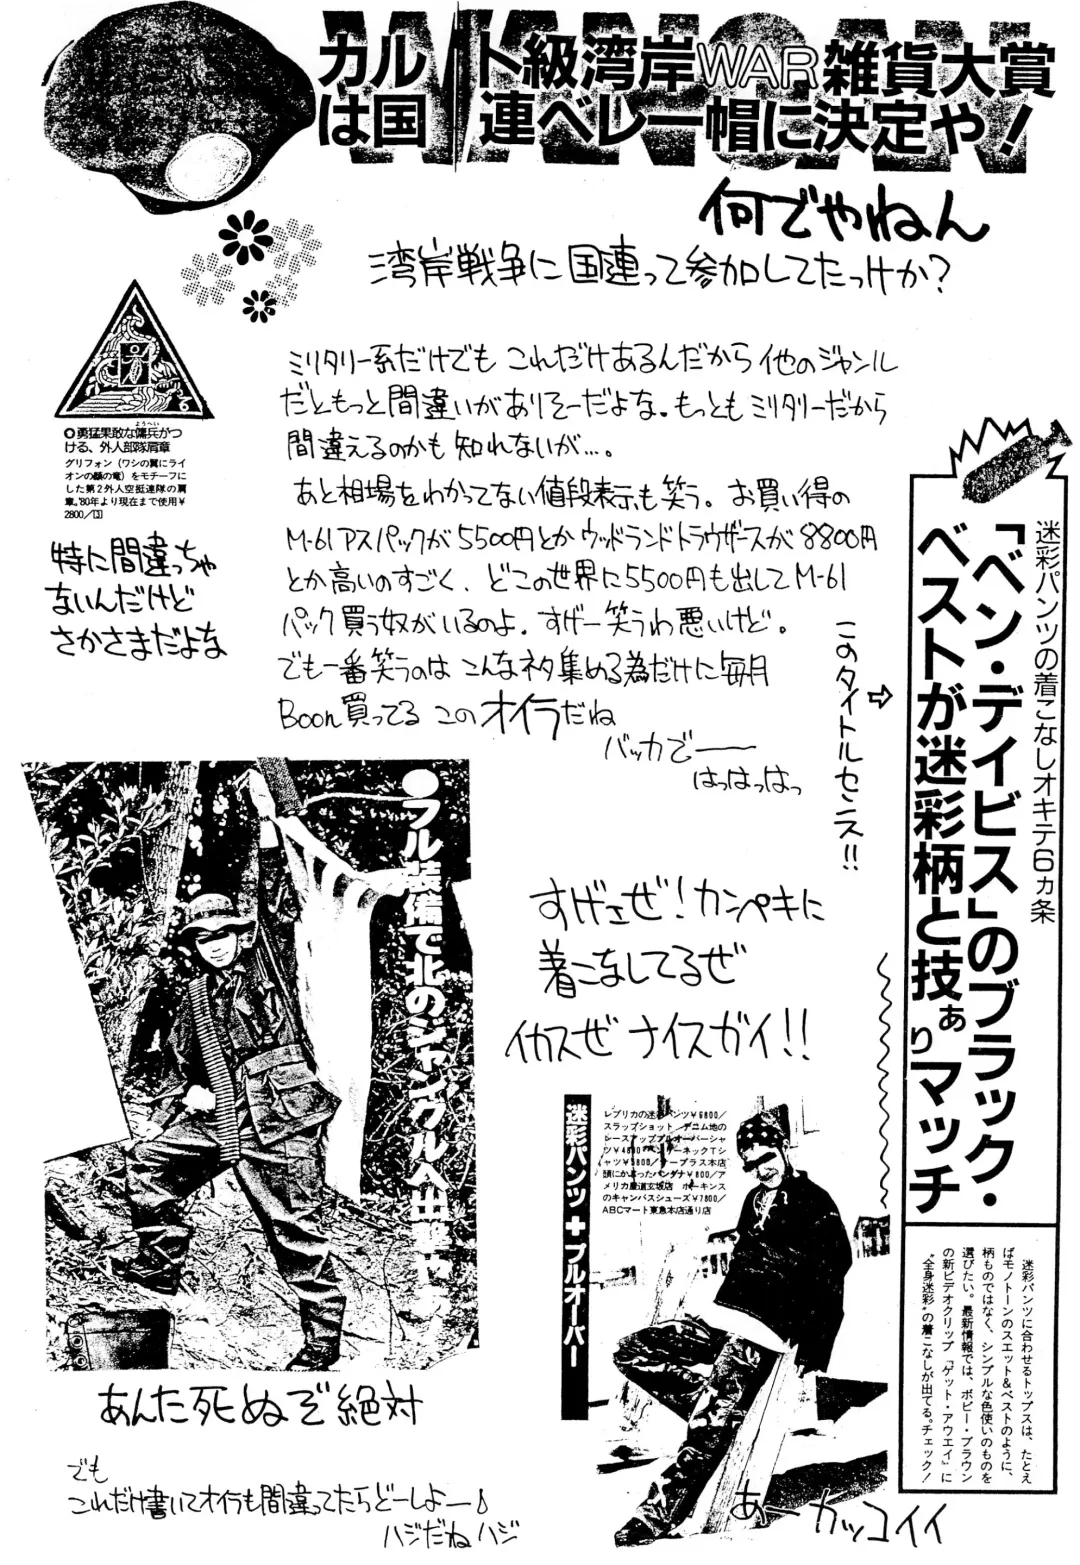 WANGAN
カルト級湾岸WAR雑貨大賞
は国連ベレー帽に決定や！
何でやねん
湾岸戦争に国連って参加してたっけか？
ミリタリー系だけでも これだけあるんだから 他のジャンル
だともっと間違いがありそーだよな。もっともミリタリーだから
間違えるのかも知れないが…。
あと相場をわかってない値段表示も笑う。お買い得の
M-61アスパックが5500円とかウッドランドトラウザースが8800円
とか高いのすごく、どこの世界に5500円も出してM-61
パック買う奴がいるのよ。すげー笑うわ悪いけど。
でも一番笑うのは こんなネタ集める為だけに毎月
Boon買ってる このオイラだね
バッカでー
はっはっはっ
ようへい
●勇猛果敢な傭兵がつ
ける、外人部隊肩章
グリフォン（ワシの翼にライ
オンの顔の竜）をモチーフに
した第2外人空挺連隊の肩
章。'80年より現在まで使用￥
2800／13
特に間違っちゃ
ないんだけど
さかさまだよな
このタイトルセンス!!
⇨
迷彩パンツの着こなしオキテ6ヵ条
「ベン・デイビス」のブラック・
ベストが迷彩柄と技ぁりマッチ
迷彩パンツに合わせるトップスは、たとえ
ばモノトーンのスエット＆ベストのように、
柄ものではなく、シンプルな色使いのものを
選びたい。最新情報では、ボビー・ブラウン
の新ビデオクリップ『ゲット・アウエイ』に
“全身迷彩”の着こなしが出てる。チェック！
●フル装備で北のジャングルへ出
すげェぜ！カンペキに
着こなしてるぜ
イカスぜ ナイスガイ!!
迷彩パンツ＋プルオーバー
レプリカの迷彩パンツ￥6800／
スラップショット デニム地の
レースアッププルオーバーシャ
ツ￥4800 ヘンリーネックTシ
頭にかぶったバンダナ￥800／ア
メリカ屋道玄坂店 ホーキンス
のキャンバスシューズ￥7800／
ABCマート東急本店通り店
あんた死ぬぞ絶対
でも
これだけ書いてオイラも間違ってたらどーしよー♪
ハジだね ハジ
あー カッコイイ